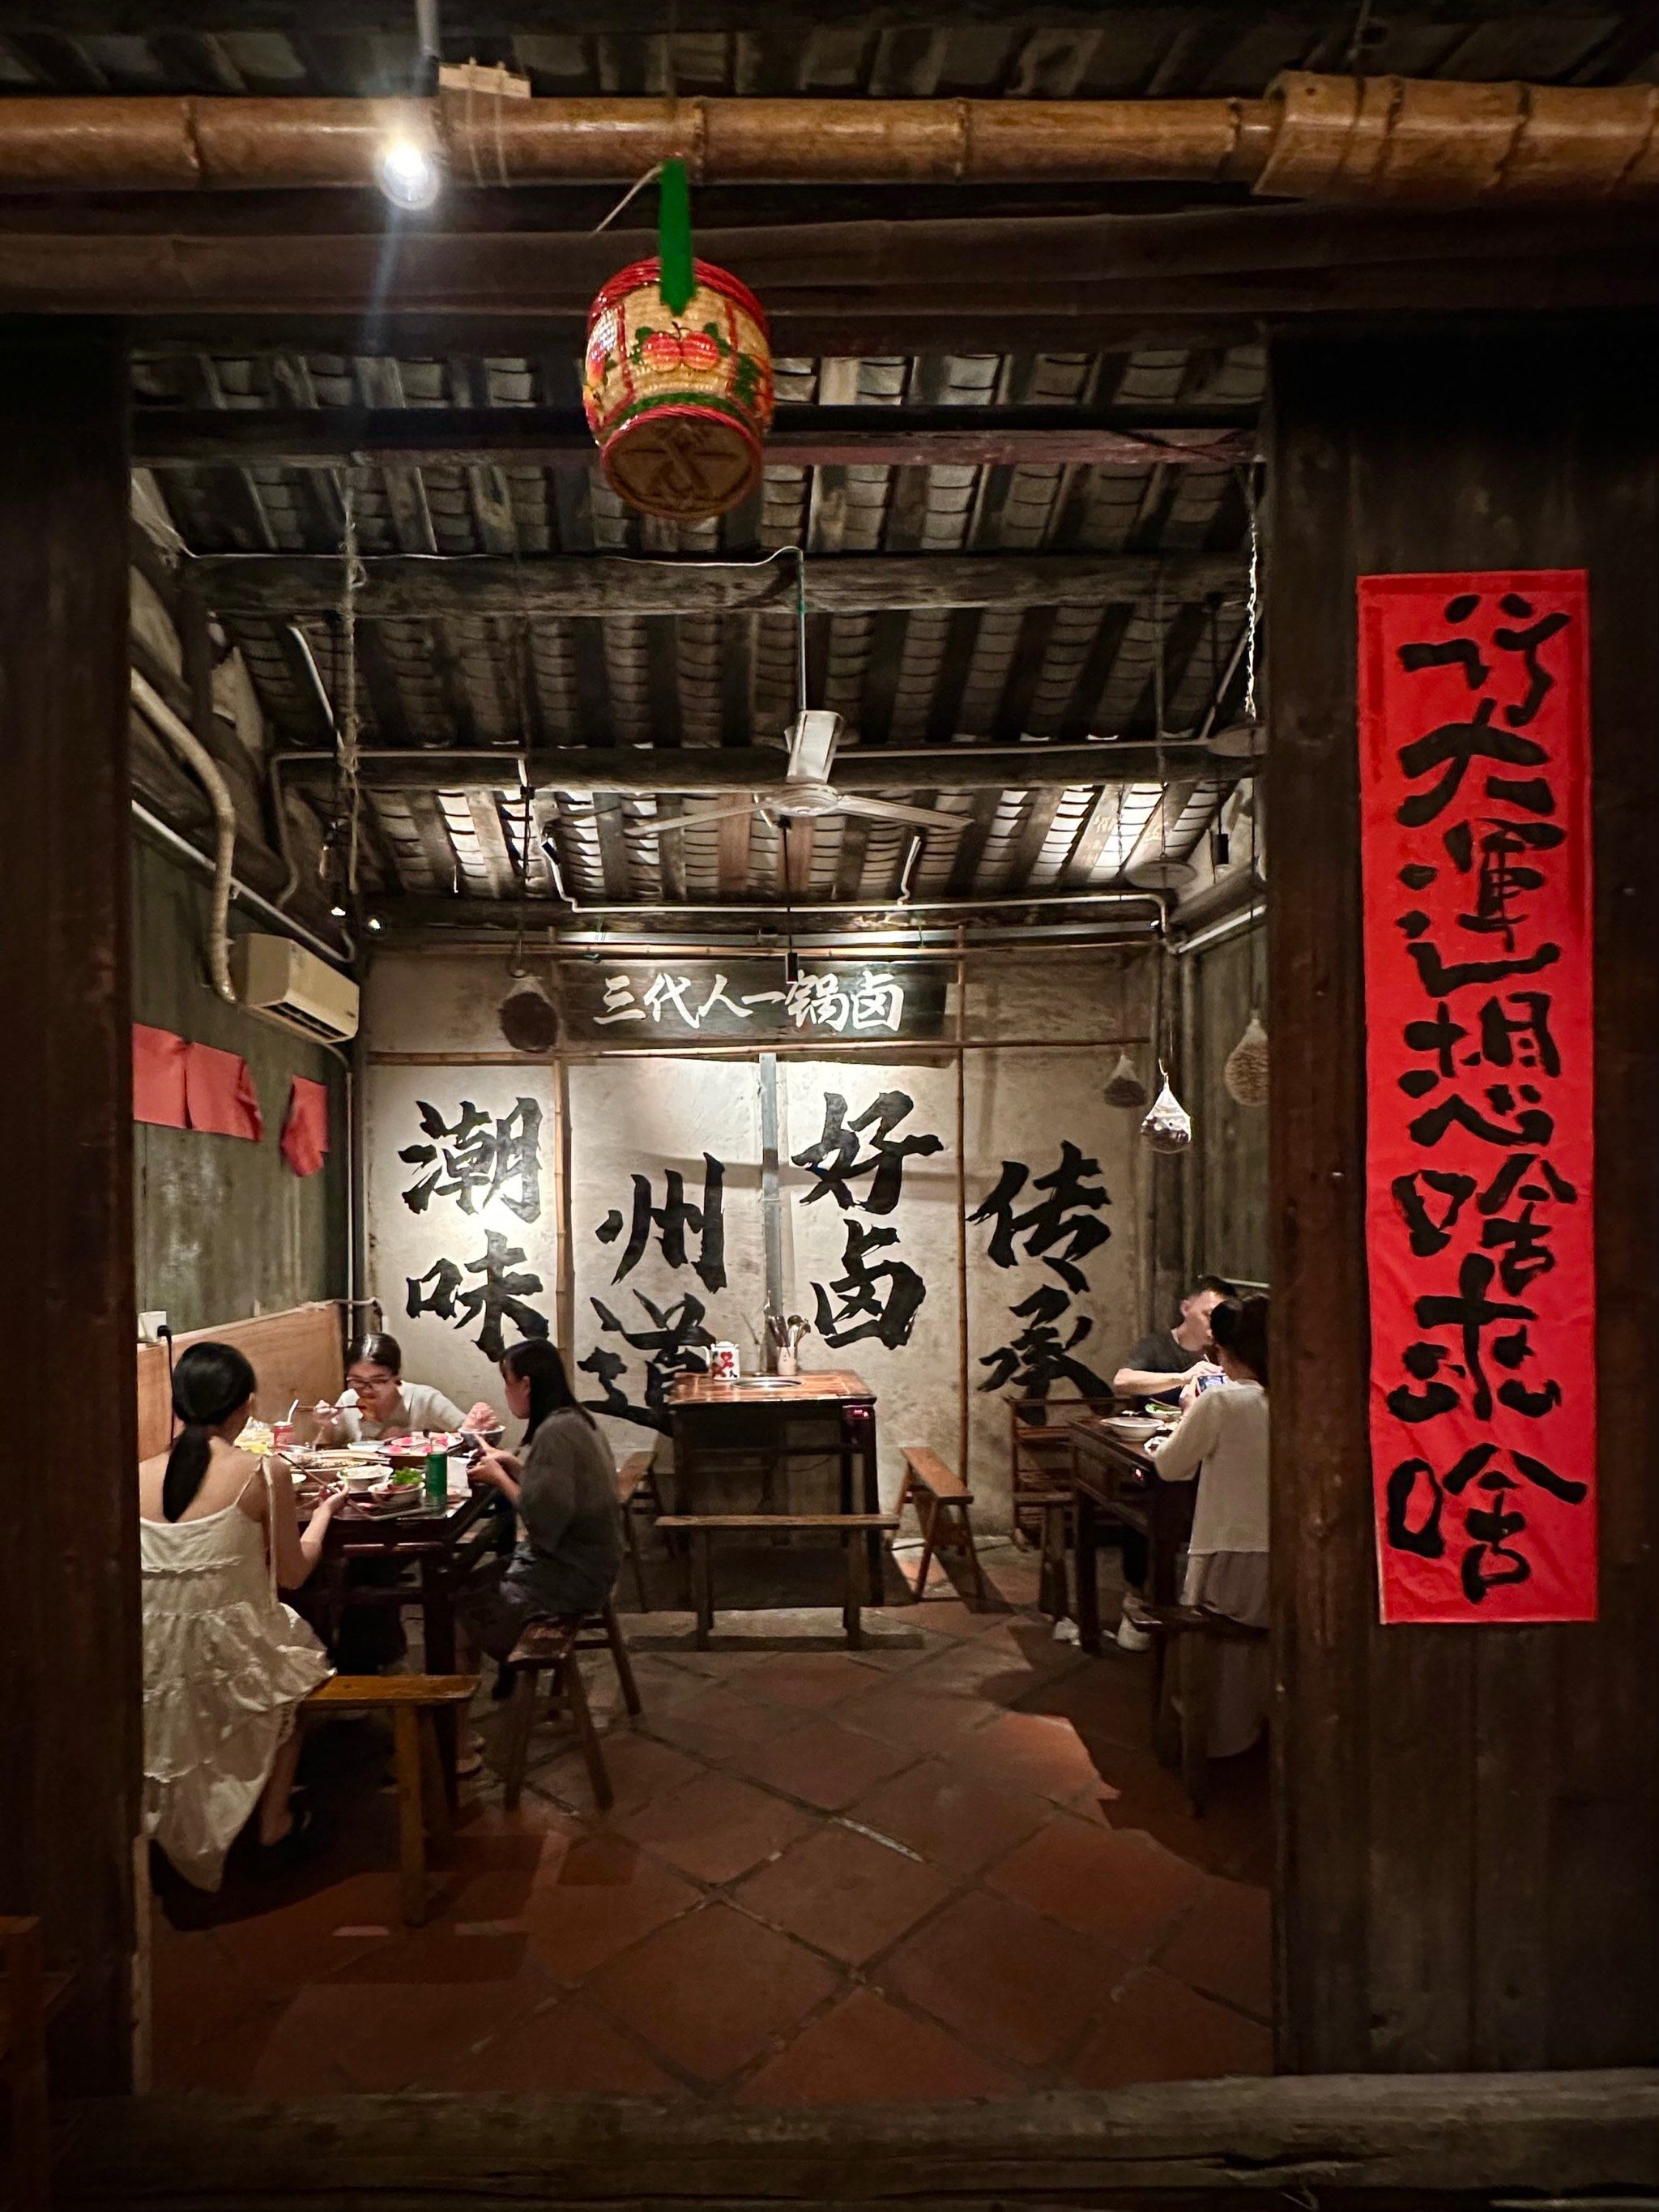 三代人一锅卤
潮州好卤传
味道承
行大運想啥来啥